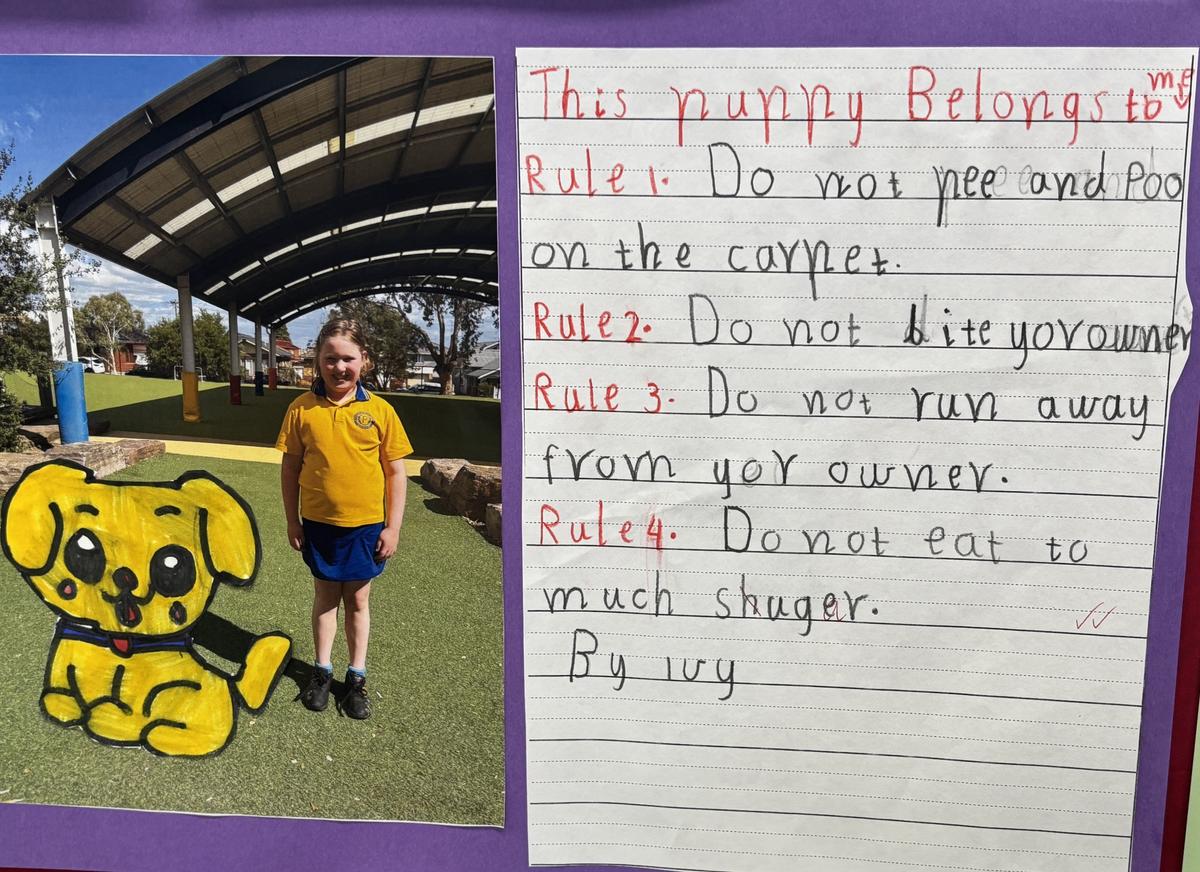 This puppy Belongs to me
Rule 1. Do not pee and Poo
on the carpet.
Rule 2. Do not bite yor owner
Rule 3. Do not run away
from yor owner.
Rule 4. Do not eat to
much shuger.
By Ivy